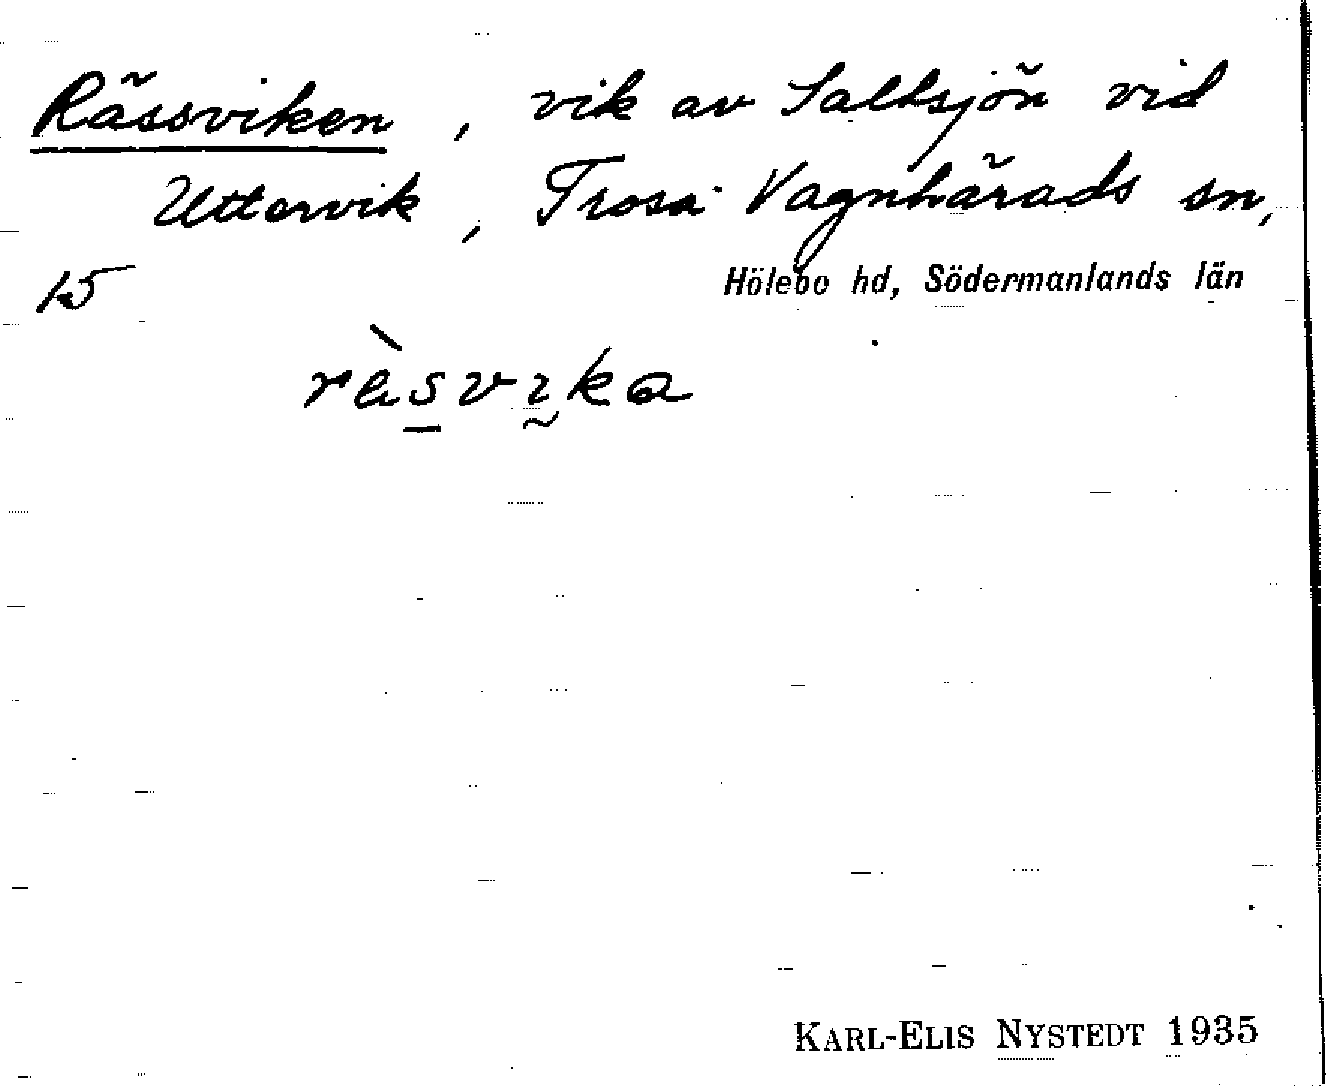 Rässviken, vik av Saltsjön vid
Uttervik, Trosa Vagnhärads sn,
15 Hölebo hd, Södermanlands län
rὲsvıka
KARL-ELIS NYSTEDT 1935